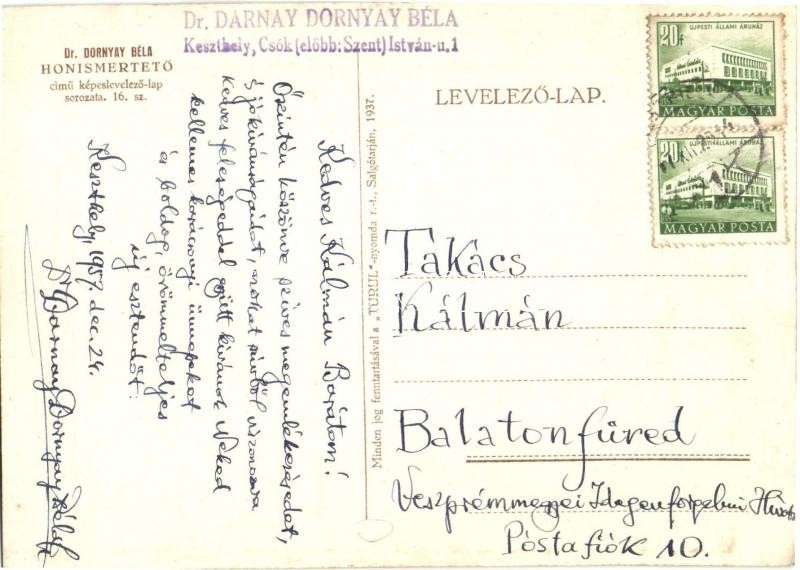 Dr. DARNAY DORNYAY BÉLA
Keszthely, Csók (előbb: Szent) István-u. 1
Dr. DORNYAY BÉLA
HONISMERTETŐ
című képeslevelező-lap
sorozata. 16. sz.
Kedves Kálmán Barátom!
Őszintén köszönve szíves megemlékezésedet,
s jókívánságaidat, azokat szívből viszonozva
kedves feleségeddel együtt kívánok Neked
kellemes karácsonyi ünnepeket
és boldog, örömmelteljes
új esztendőt.
Keszthely, 1957. dec. 24.
Dr Darnay Dornyay Béla
Minden jog fenntartásával a „TURUL"-nyomda r.-t., Salgótarján, 1937.
LEVELEZŐ-LAP.
20f
UJPESTI ÁLLAMI ÁRUHÁZ
MAGYAR POSTA
20f
UJPESTI ÁLLAMI ÁRUHÁZ
MAGYAR POSTA
Takács
Kálmán
Balatonfüred
Veszprémmegyei Idegenforgalmi Hivatal
Póstafiók 10.